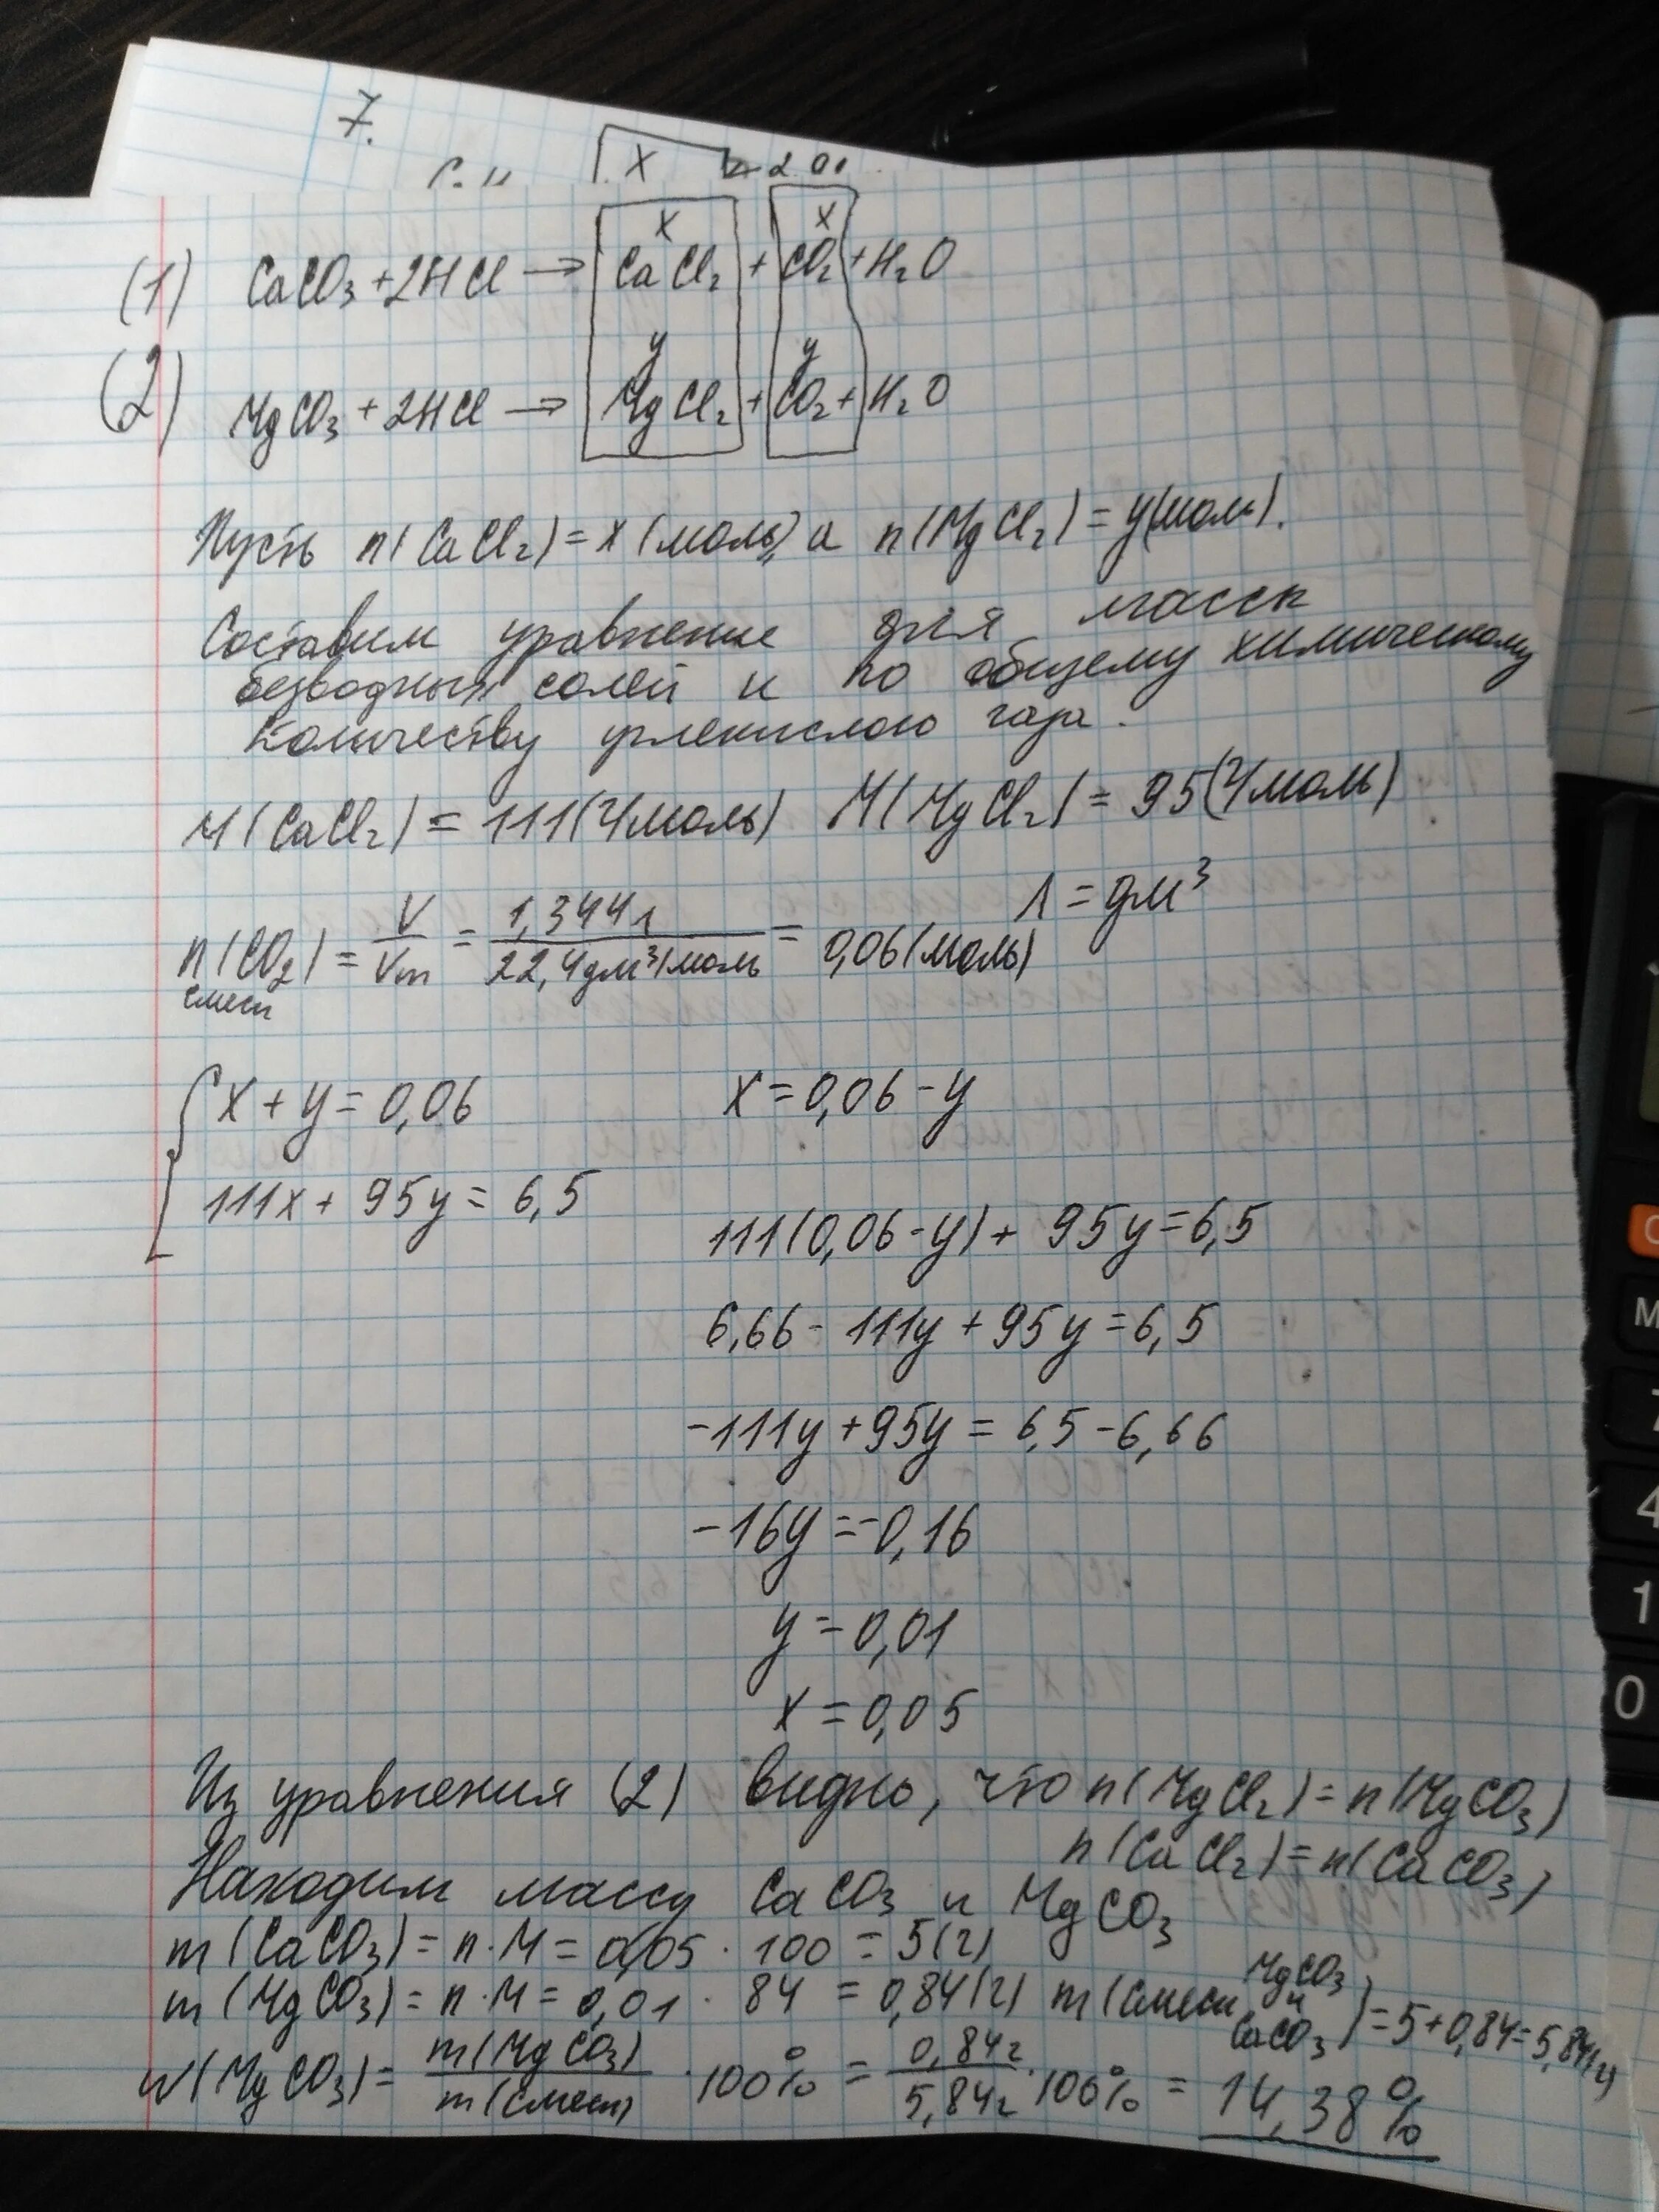 7.
X
X X
(1) CaCO₃ + 2HCl → CaCl₂ + CO₂ + H₂O
y y
(2) MgCO₃ + 2HCl → MgCl₂ + CO₂ + H₂O
Пусть n(CaCl₂) = x (моль), а n(MgCl₂) = y(моль).
Составим уравнение для массы
безводных солей и по общему химическому
количеству углекислого газа.
M(CaCl₂) = 111(г/моль) M(MgCl₂) = 95(г/моль)
л = дм³
n(CO₂) = V/Vm = 1,344л/22,4дм³/моль = 0,06(моль)
смеси
x + y = 0,06 x = 0,06 - y
111x + 95y = 6,5
111(0,06 - y) + 95y = 6,5
6,66 - 111y + 95y = 6,5
-111y + 95y = 6,5 - 6,66
-16y = -0,16
y = 0,01
x = 0,05
Из уравнения (2) видно, что n(MgCl₂) = n(MgCO₃)
n(CaCl₂) = n(CaCO₃)
Находим массу CaCO₃ и MgCO₃
m(CaCO₃) = n · M = 0,05 · 100 = 5(г)
m(MgCO₃) = n · M = 0,01 · 84 = 0,84(г) m(смеси MgCO₃ и CaCO₃) = 5 + 0,84 = 5,84(г)
w(MgCO₃) = m(MgCO₃)/m(смеси) · 100% = 0,84г/5,84г · 100% = 14,38%
M
7
4
1
0